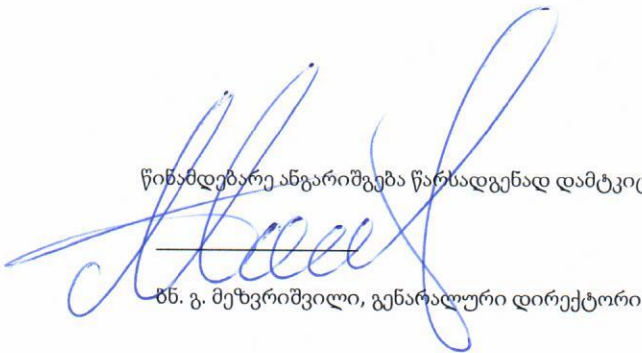 წინამდებარე ანგარიშგება წარსადგენად
ბნ. გ. მეზვრიშვილი, გენარალური დირექტორი